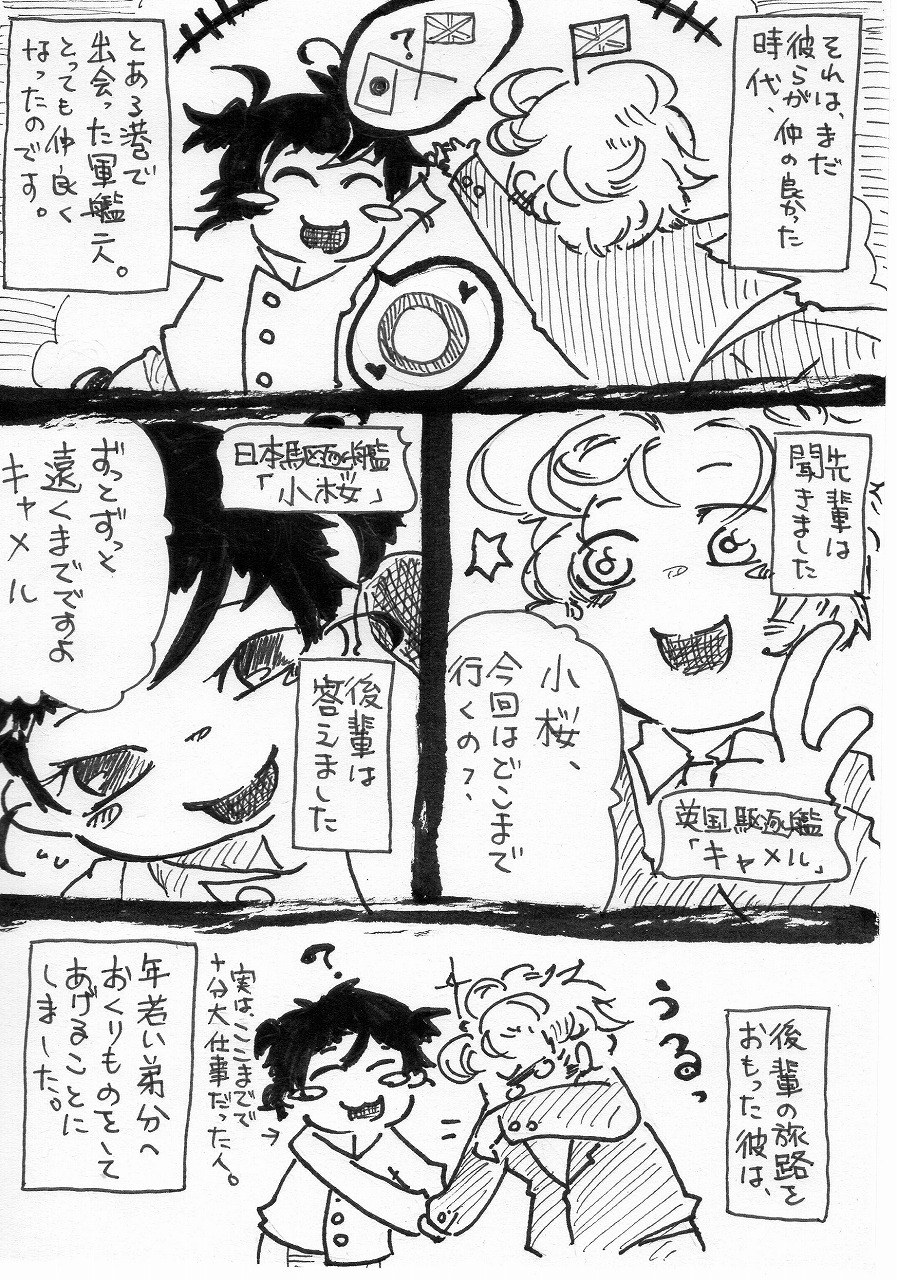 それは、まだ
彼らが仲の良かった
時代、
とある港で
出会った軍艦二人。
とっても仲良く
なったのです。
?
先輩は
聞きました
小桜、
今回はどこまで
行くの?
英国駆逐艦
「キャメル」
日本駆逐艦
「小桜」
ずっとずっと
遠くまでですよ
キャメル
後輩は
答えました
後輩の旅路を
おもった彼は、
うるっ
?
実は、ここまでで
十分大仕事だった人。
年若い弟分へ
おくりものをして
あげることに
しました。